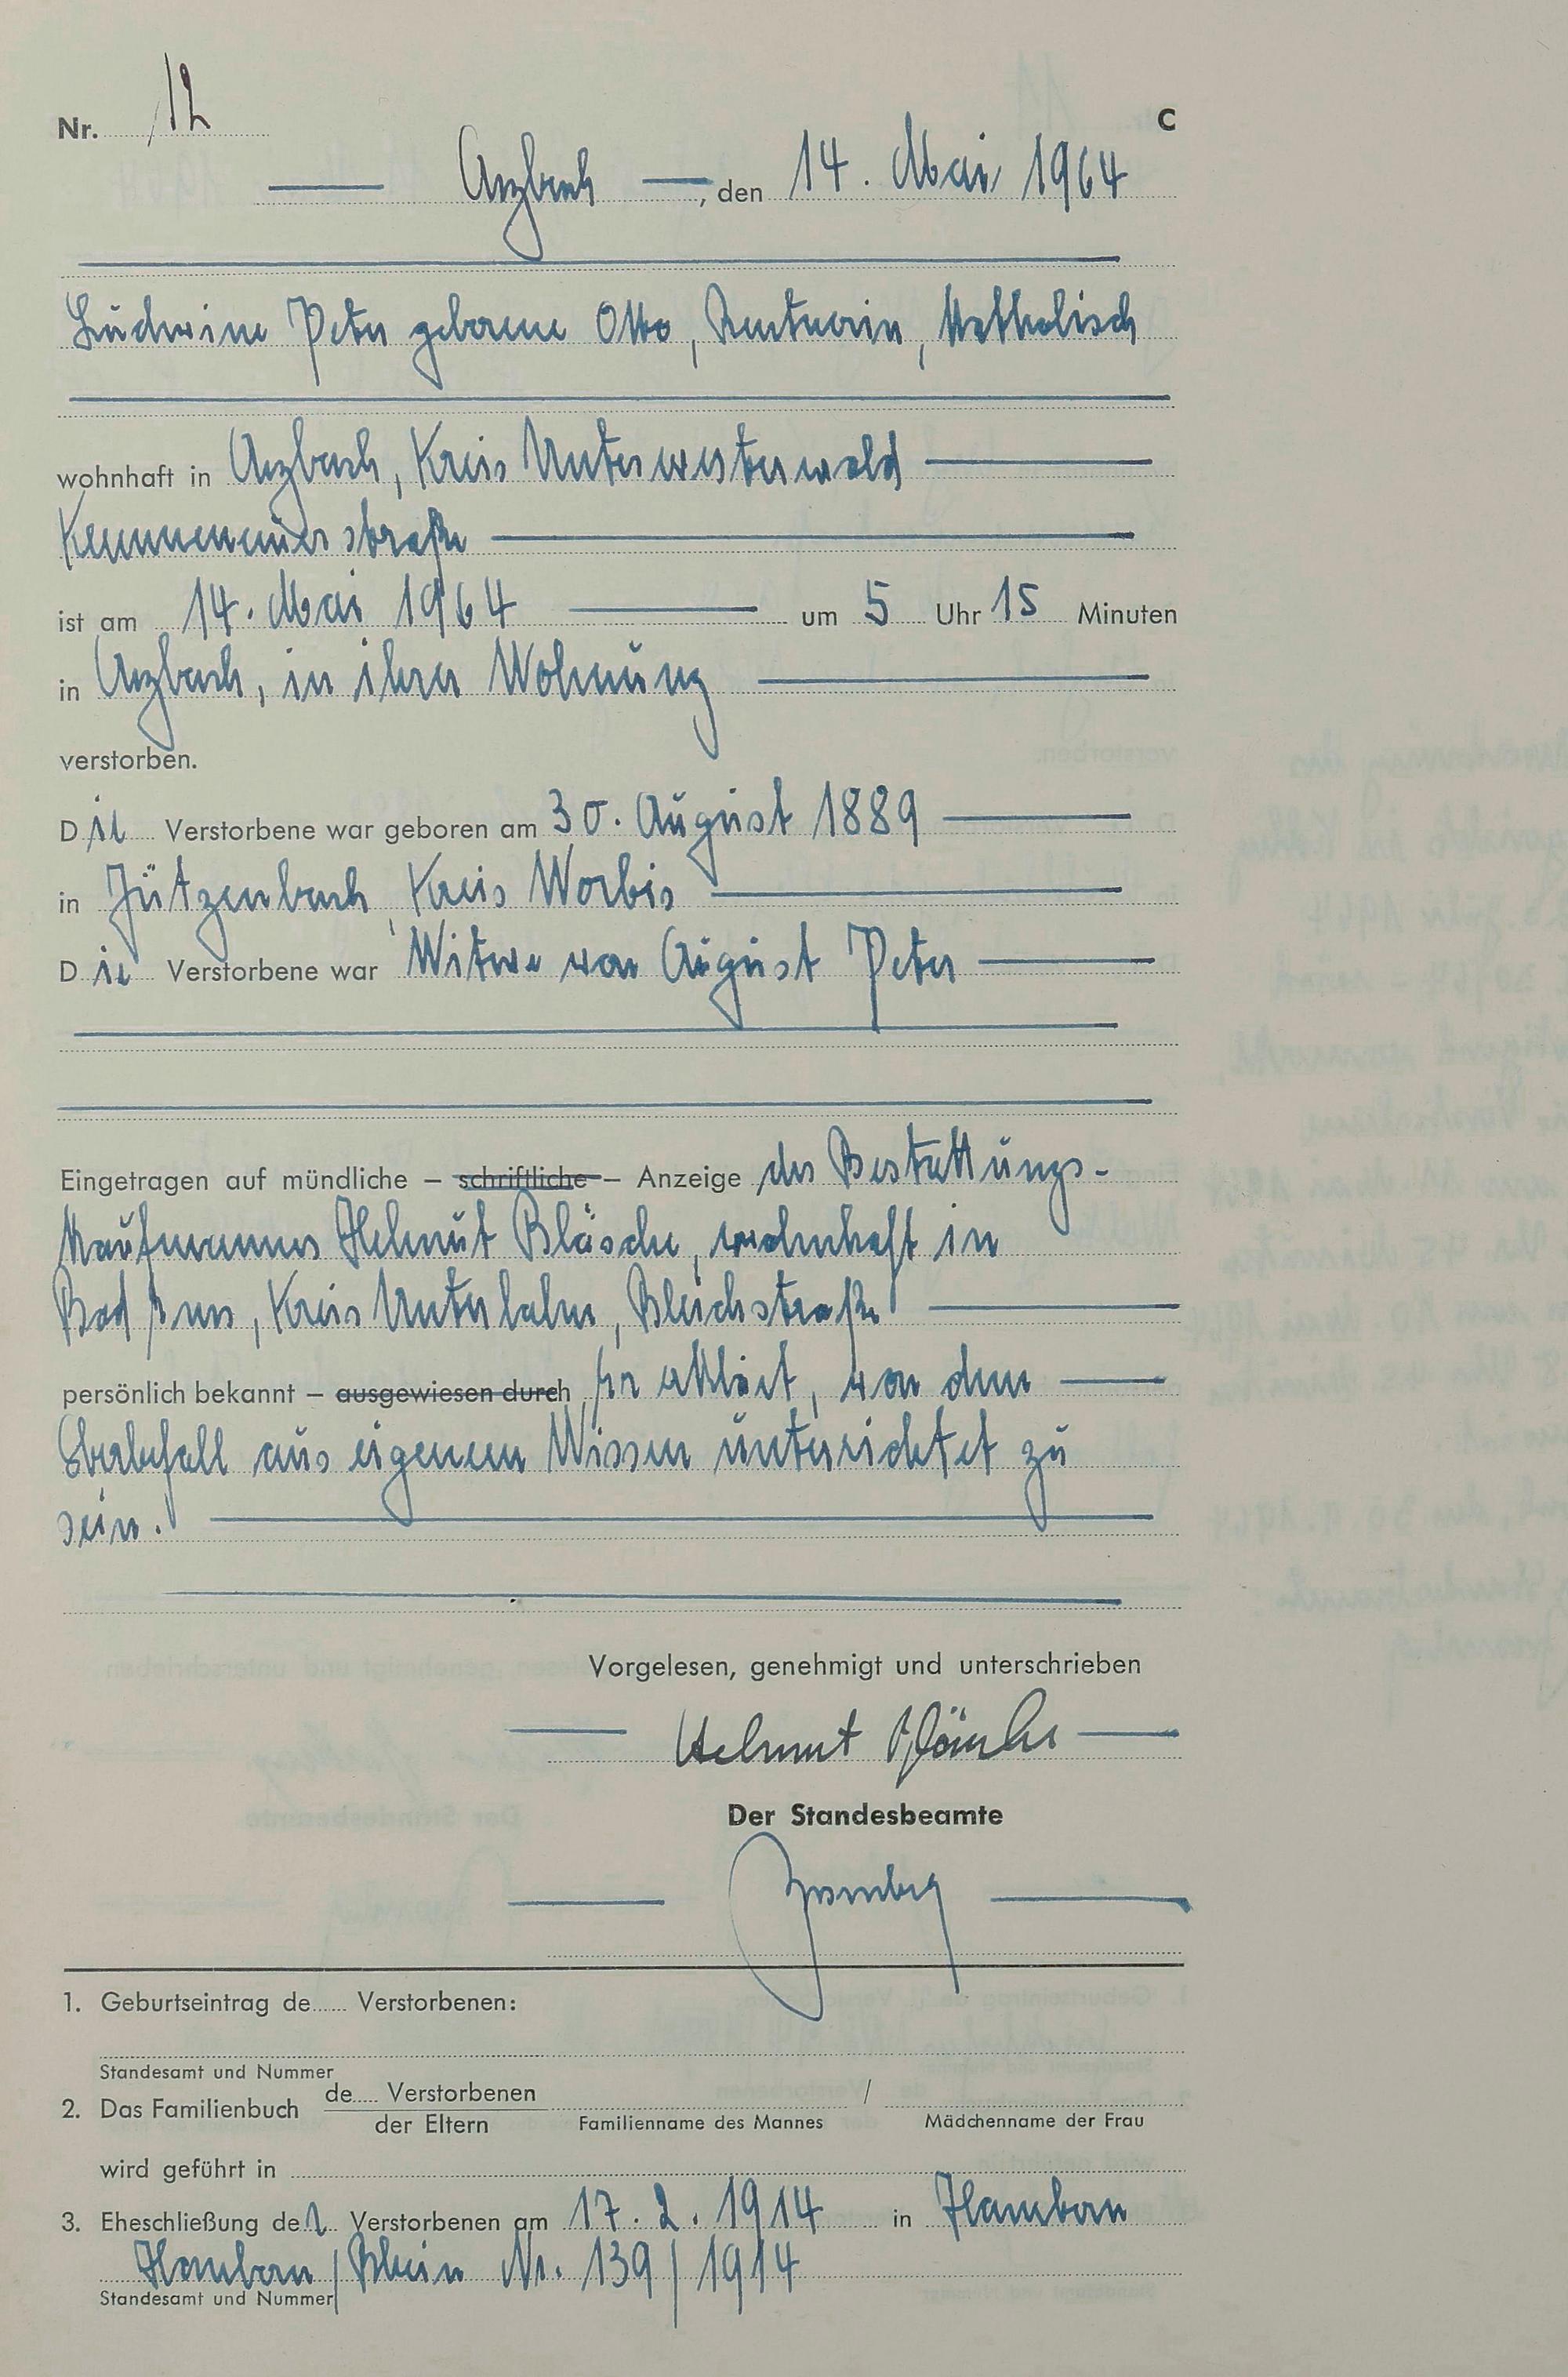 Nr. 12
C
Arzbach, den 14. Mai 1964
Ludwine Peter geborene Otto, Rentnerin, katholisch
wohnhaft in Arzbach, Kreis Unterwesterwald
Kemmenauerstraße
ist am 14. Mai 1964 um 5 Uhr 15 Minuten
in Arzbach, in ihrer Wohnung
verstorben.
Die Verstorbene war geboren am 30. August 1889
in Jützenbach, Kreis Worbis
Die Verstorbene war Witwe von August Peter
Eingetragen auf mündliche – schriftliche – Anzeige des Bestattungs-
kaufmannes Helmut Bläsche, wohnhaft in
Bad Ems, Kreis Unterlahn, Bleichstraße
persönlich bekannt – ausgewiesen durch Er erklärt, von dem
Sterbefall aus eigenem Wissen unterrichtet zu
sein.
Vorgelesen, genehmigt und unterschrieben
Helmut Bläsche
Der Standesbeamte
1. Geburtseintrag de Verstorbenen:
Standesamt und Nummer
2. Das Familienbuch de Verstorbenen / der Eltern
Familienname des Mannes Mädchenname der Frau
wird geführt in
3. Eheschließung der Verstorbenen am 17. 2. 1914 in Hamborn
Hamborn/Rhein Nr. 139/1914
Standesamt und Nummer